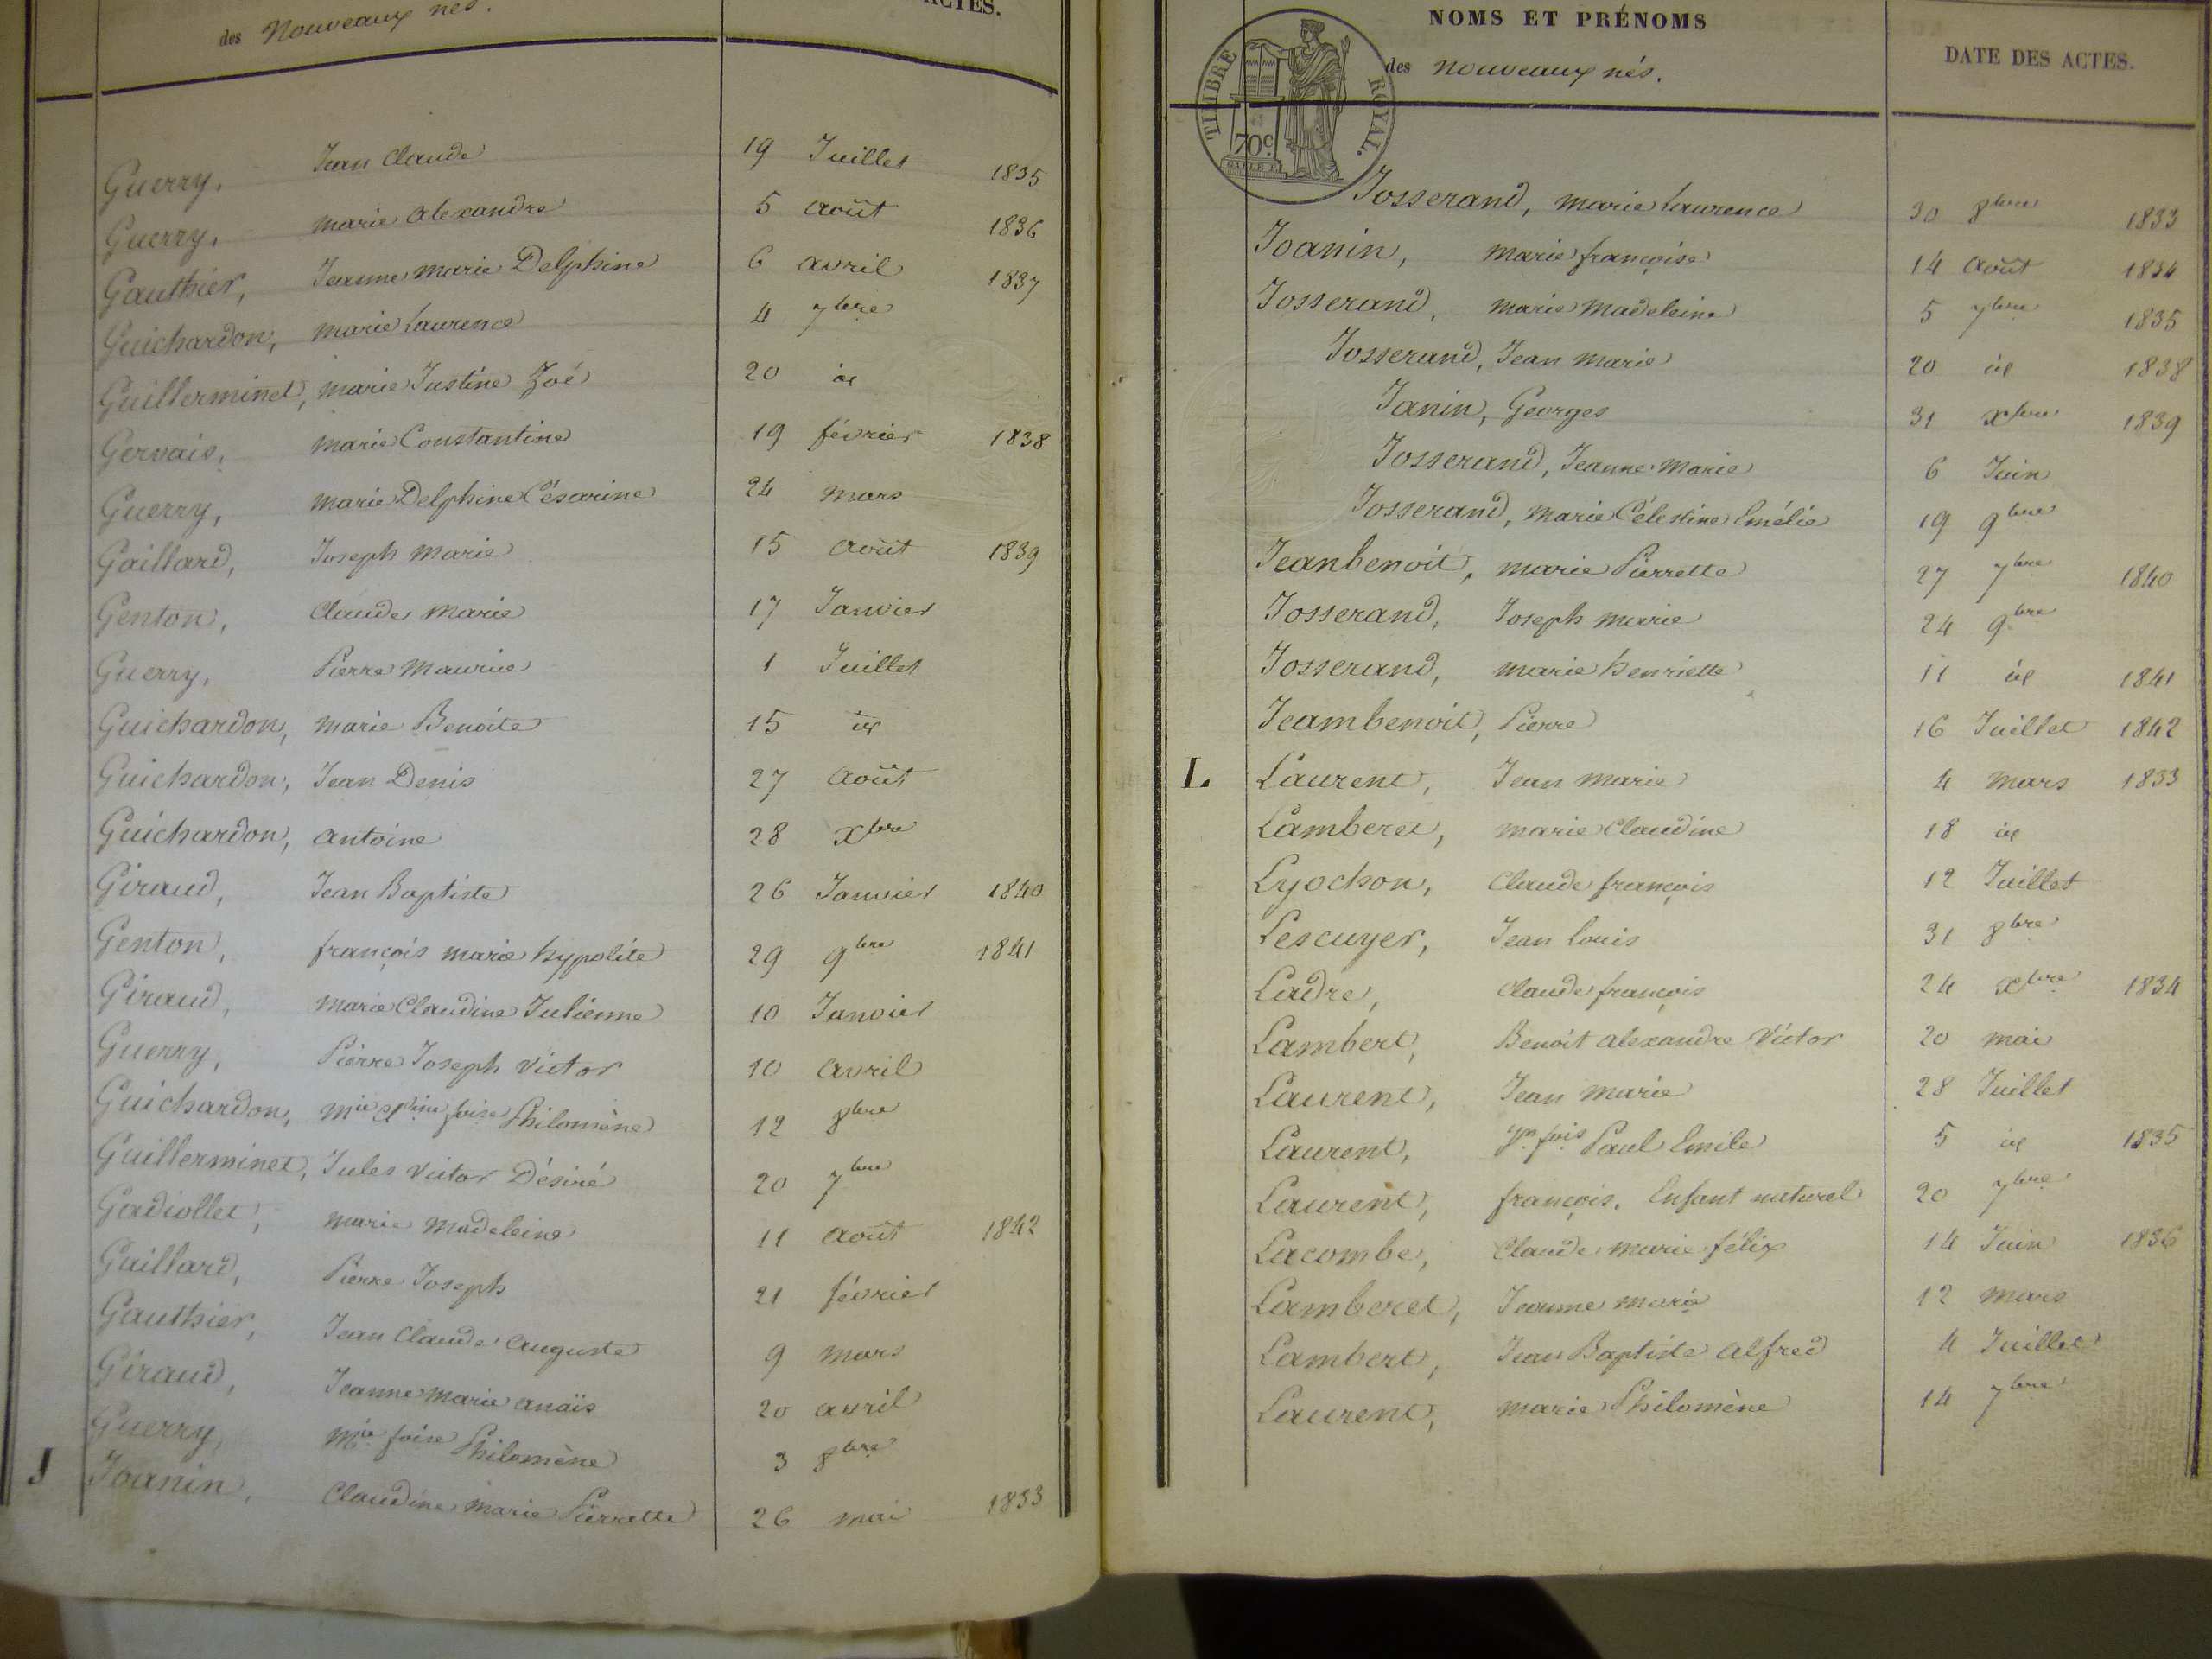 des Nouveaux nés.
ACTES.
Guerry, Jean Claude 19 Juillet 1835
Guerry, marie Alexandre 5 Août 1836
Gauthier, Jeanne marie Delphine 6 avril 1837
Guichardon, marie Laurence 4 7bre
Guillerminet, marie Justine Zoé 20 id
Gervais, marie Constantine 19 février 1838
Guerry, marie Delphine Césarine 24 mars
Gaillard, Joseph marie 15 Août 1839
Genton, Claude marie 17 Janvier
Guerry, Pierre Maurice 1 Juillet
Guichardon, marie Benoite 15 id
Guichardon, Jean Denis 27 Août
Guichardon, antoine 28 Xbre
Giraud, Jean Baptiste 26 Janvier 1840
Genton, françois marie hypolite 29 9bre 1841
Giraud, marie Claudine Julienne 10 Janvier
Guerry, Pierre Joseph Victor 10 avril
Guichardon, mie foise Philomène 12 8bre
Guillerminet, Jules Victor Désiré 20 7bre
Gadiollet, marie Madeleine 11 Août 1842
Gaillard, Pierre Joseph 21 février
Gauthier, Jean Claude Auguste 9 mars
Giraud, Jeanne marie anaïs 20 avril
Guerry, mie foise Philomène 3 8bre
J Joanin, Claudine marie Pierrette 26 mai 1833
NOMS ET PRÉNOMS
des nouveaux nés.
DATE DES ACTES.
TIMBRE ROYAL.
70c.
Josserand, marie Laurence 30 8bre 1833
Joanin, marie françoise 14 Août 1834
Josserand, marie Madeleine 5 7bre 1835
Josserand, Jean marie 20 id 1838
Janin, Georges 31 Xbre 1839
Josserand, Jeanne Marie 6 Juin
Josserand, marie Célestine Emélie 19 9bre
Jeanbenoit, marie Pierrette 27 7bre 1840
Josserand, Joseph marie 24 9bre
Josserand, marie henriette 11 id 1841
Jeambenoit, Pierre 16 Juillet 1842
L Laurent, Jean marie 4 mars 1833
Lamberet, marie Claudine 18 id
Lyochon, Claude françois 12 Juillet
Lescuyer, Jean Louis 31 8bre
Ladre, Claude françois 24 Xbre 1834
Lambert, Benoit Alexandre Victor 20 mai
Laurent, Jean Marie 28 Juillet
Laurent, Jn fois Paul Emile 5 id 1835
Laurent, françois. Enfant naturel 20 7bre
Lacombe, Claude marie félix 14 Juin 1836
Lamberet, Jeanne marie 12 mars
Lambert, Jean Baptiste Alfred 4 Juillet
Laurent, marie Philomène 14 7bre